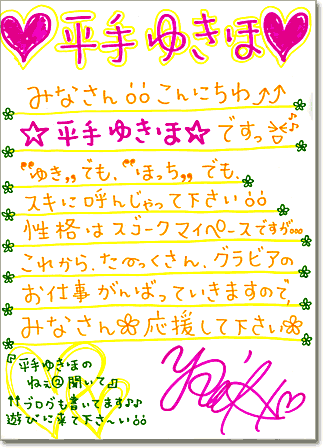 ♡平手ゆきほ♡
みなさんöö こんにちわ↑↑
☆平手ゆきほ☆ですっ♪
"ゆき„でも、"ほっち„でも、
スキに呼んじゃって下さいöö
性格はスゴークマイペースですが…
これから、た〜っくさん、グラビアの
お仕事がんばっていきますので、
みなさん❀応援して下さい❀
『平手ゆきほの
ねぇ@聞いて』
↑↑ブログも書いてます♪♪
遊びに来て下さ〜いöö